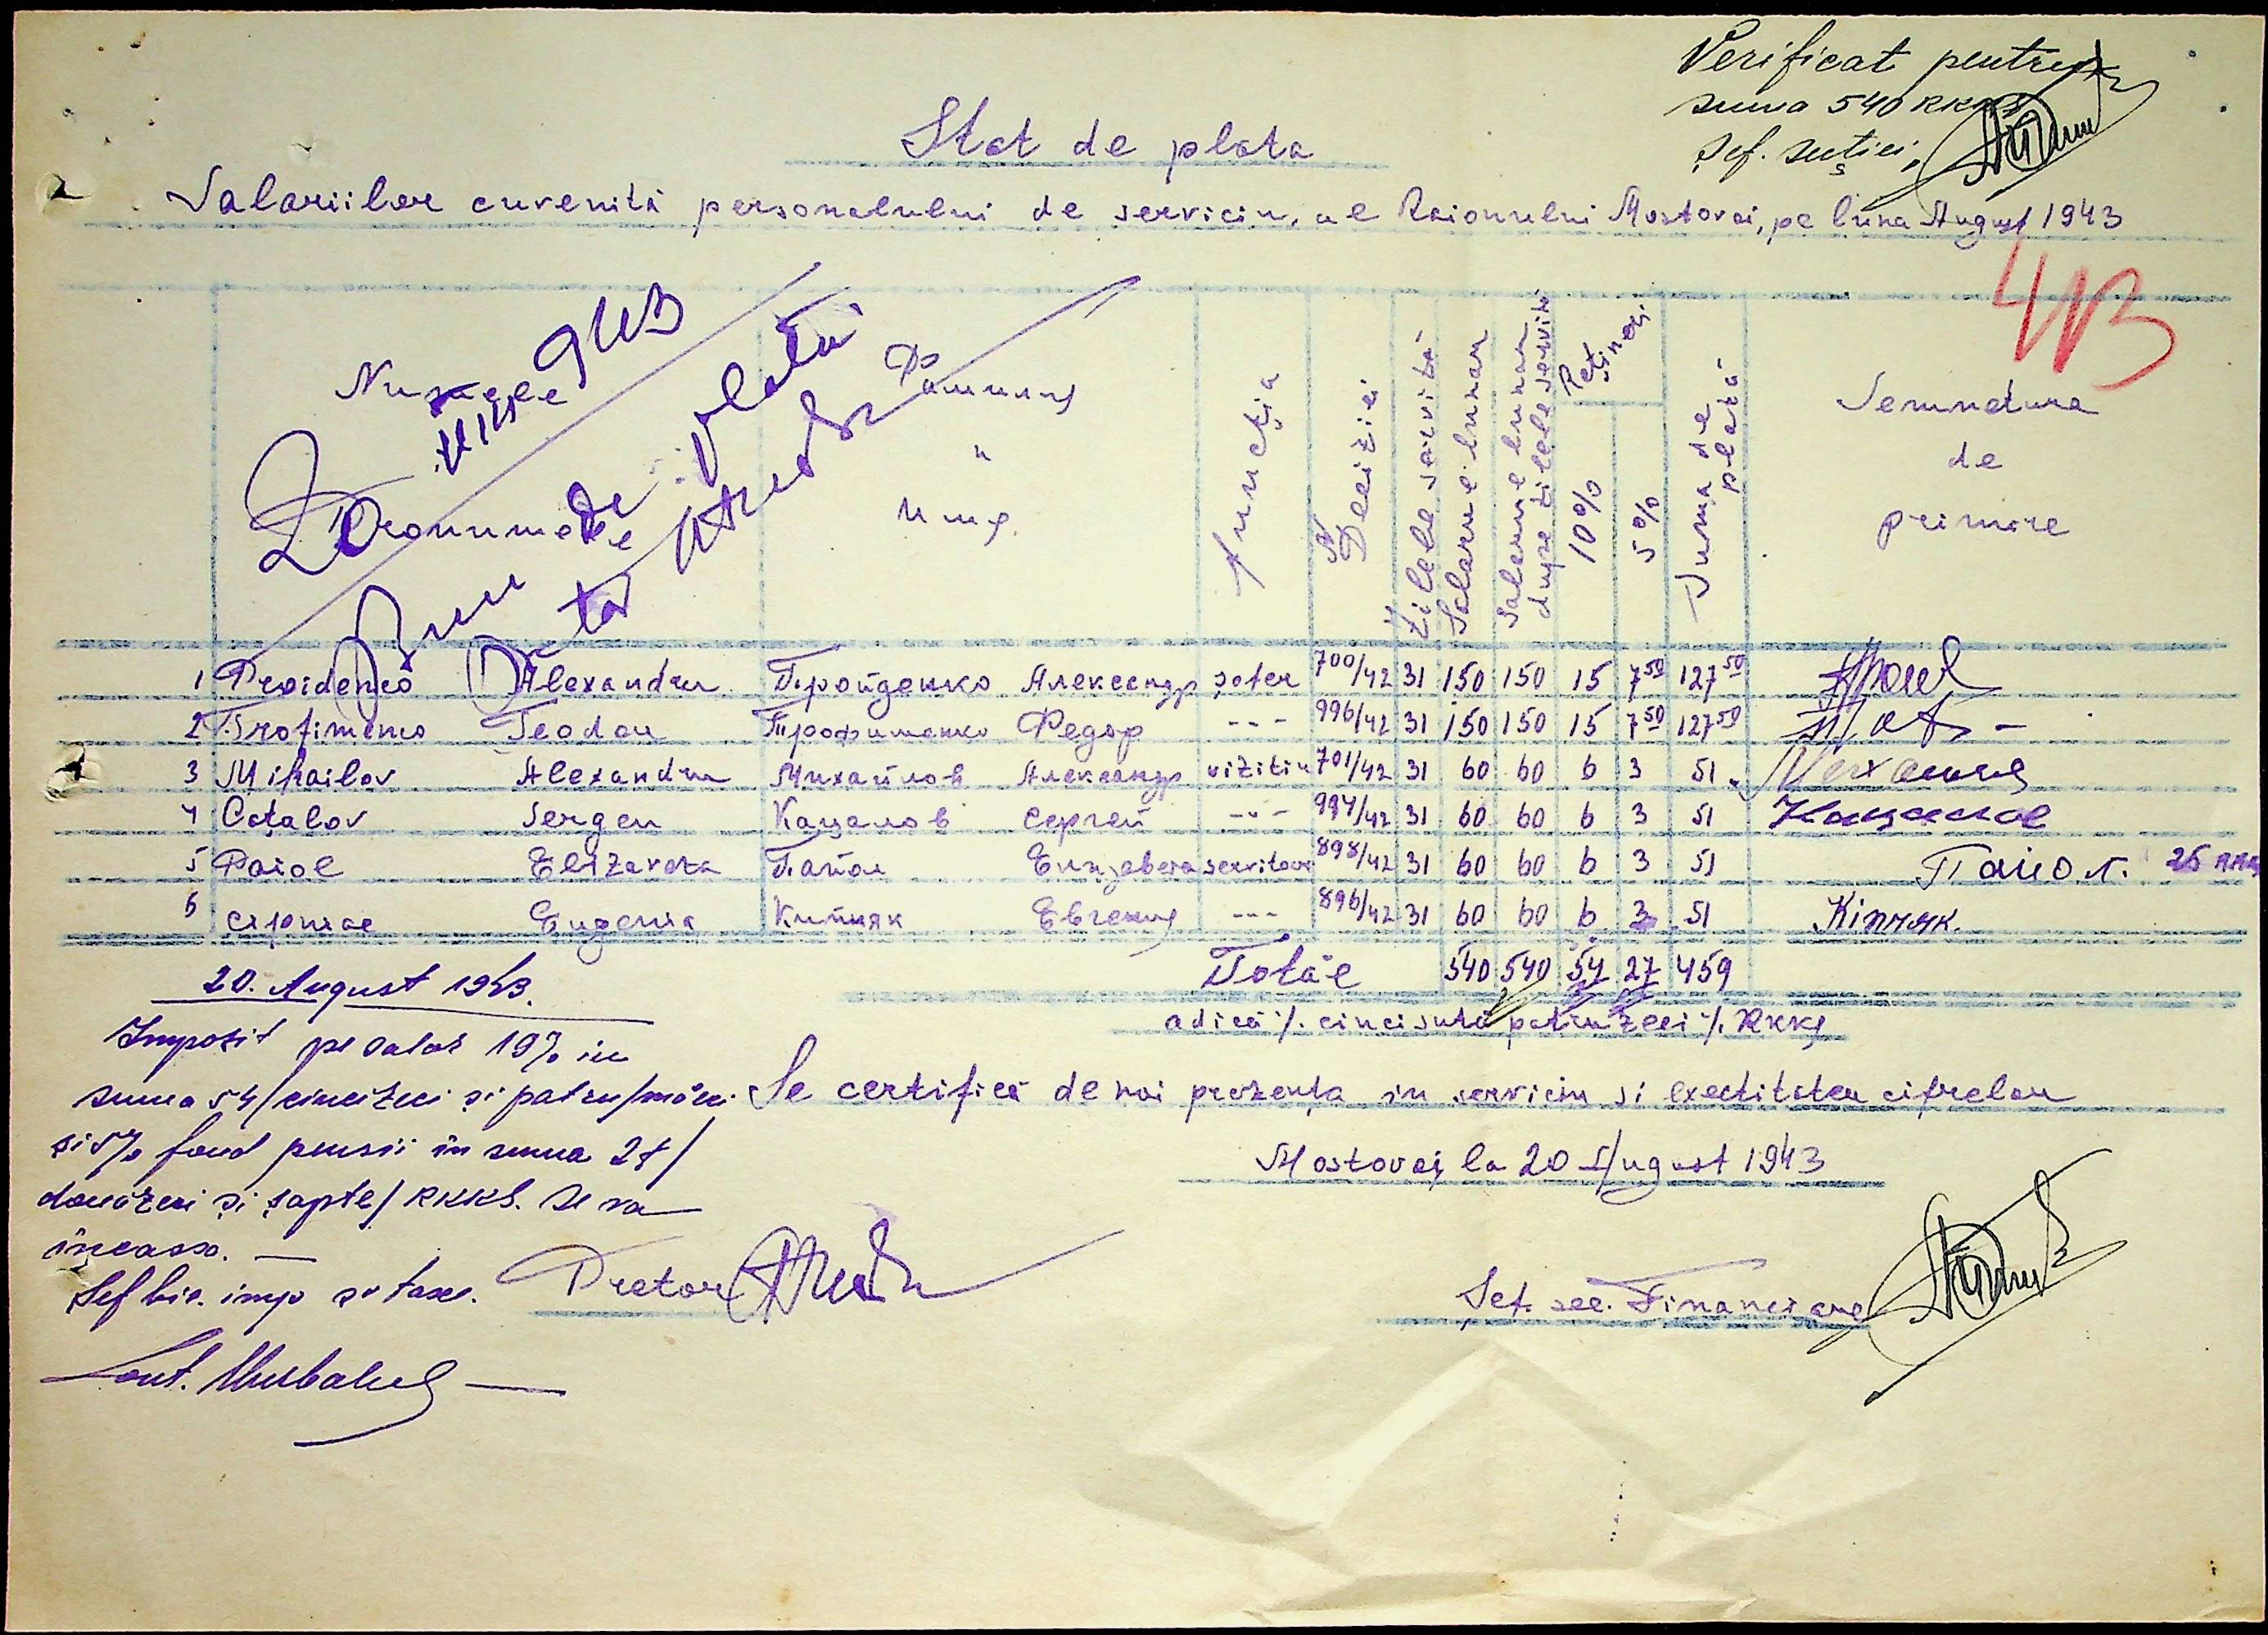 Verificat pentru
suma 540 RKKS
Șef. secției,
Stat de plata
Salariilor cuvenită personalului de serviciu, al Raionului Mostovoi, pe luna August 1943
413
Numele
Pronumele
Фамилия
и
имя
Funcția
№ Deciziei
Zilele servite
Salariul lunar
Salariul lunar dupe zilele servite
Rețineri
10%
5%
Suma de plată
Semnatura
de
primire
943
1 Proidenco Alexandru Пройденко Александр șofer 700/42 31 150 150 15 7 50 127 50
2 Trofimenco Teodor Трофименко Федор -"- 996/42 31 150 150 15 7 50 127 50
3 Mihailov Alexandru Михайлов Александр vizitiu 701/42 31 60 60 6 3 51
4 Cațalov Sergeu Кацалов Сергей -"- 997/42 31 60 60 6 3 51 Кацалов
5 Paiol Elizaveta Пайол Елизавета servitoare 898/42 31 60 60 6 3 51 Пайол.
6 Eugenia Кипняк Евгения -"- 896/42 31 60 60 6 3 51 Кіпняк.
Total 540 540 54 27 459
adică %. cinci sute patru zeci %. RKKS
20. August 1943.
Impozit pe salar 10% în
suma 54/cincizeci și patru/mărci
și 5% fond pensii în suma 27/
douăzeci și șapte/ RKKS. se va
încassa. —
Șef bir. imp și taxe.
Se certifică de noi prezența in serviciu si exectitatea cifrelor
Mostovoi la 20 August 1943
Pretor
Șef. sec. Financiare